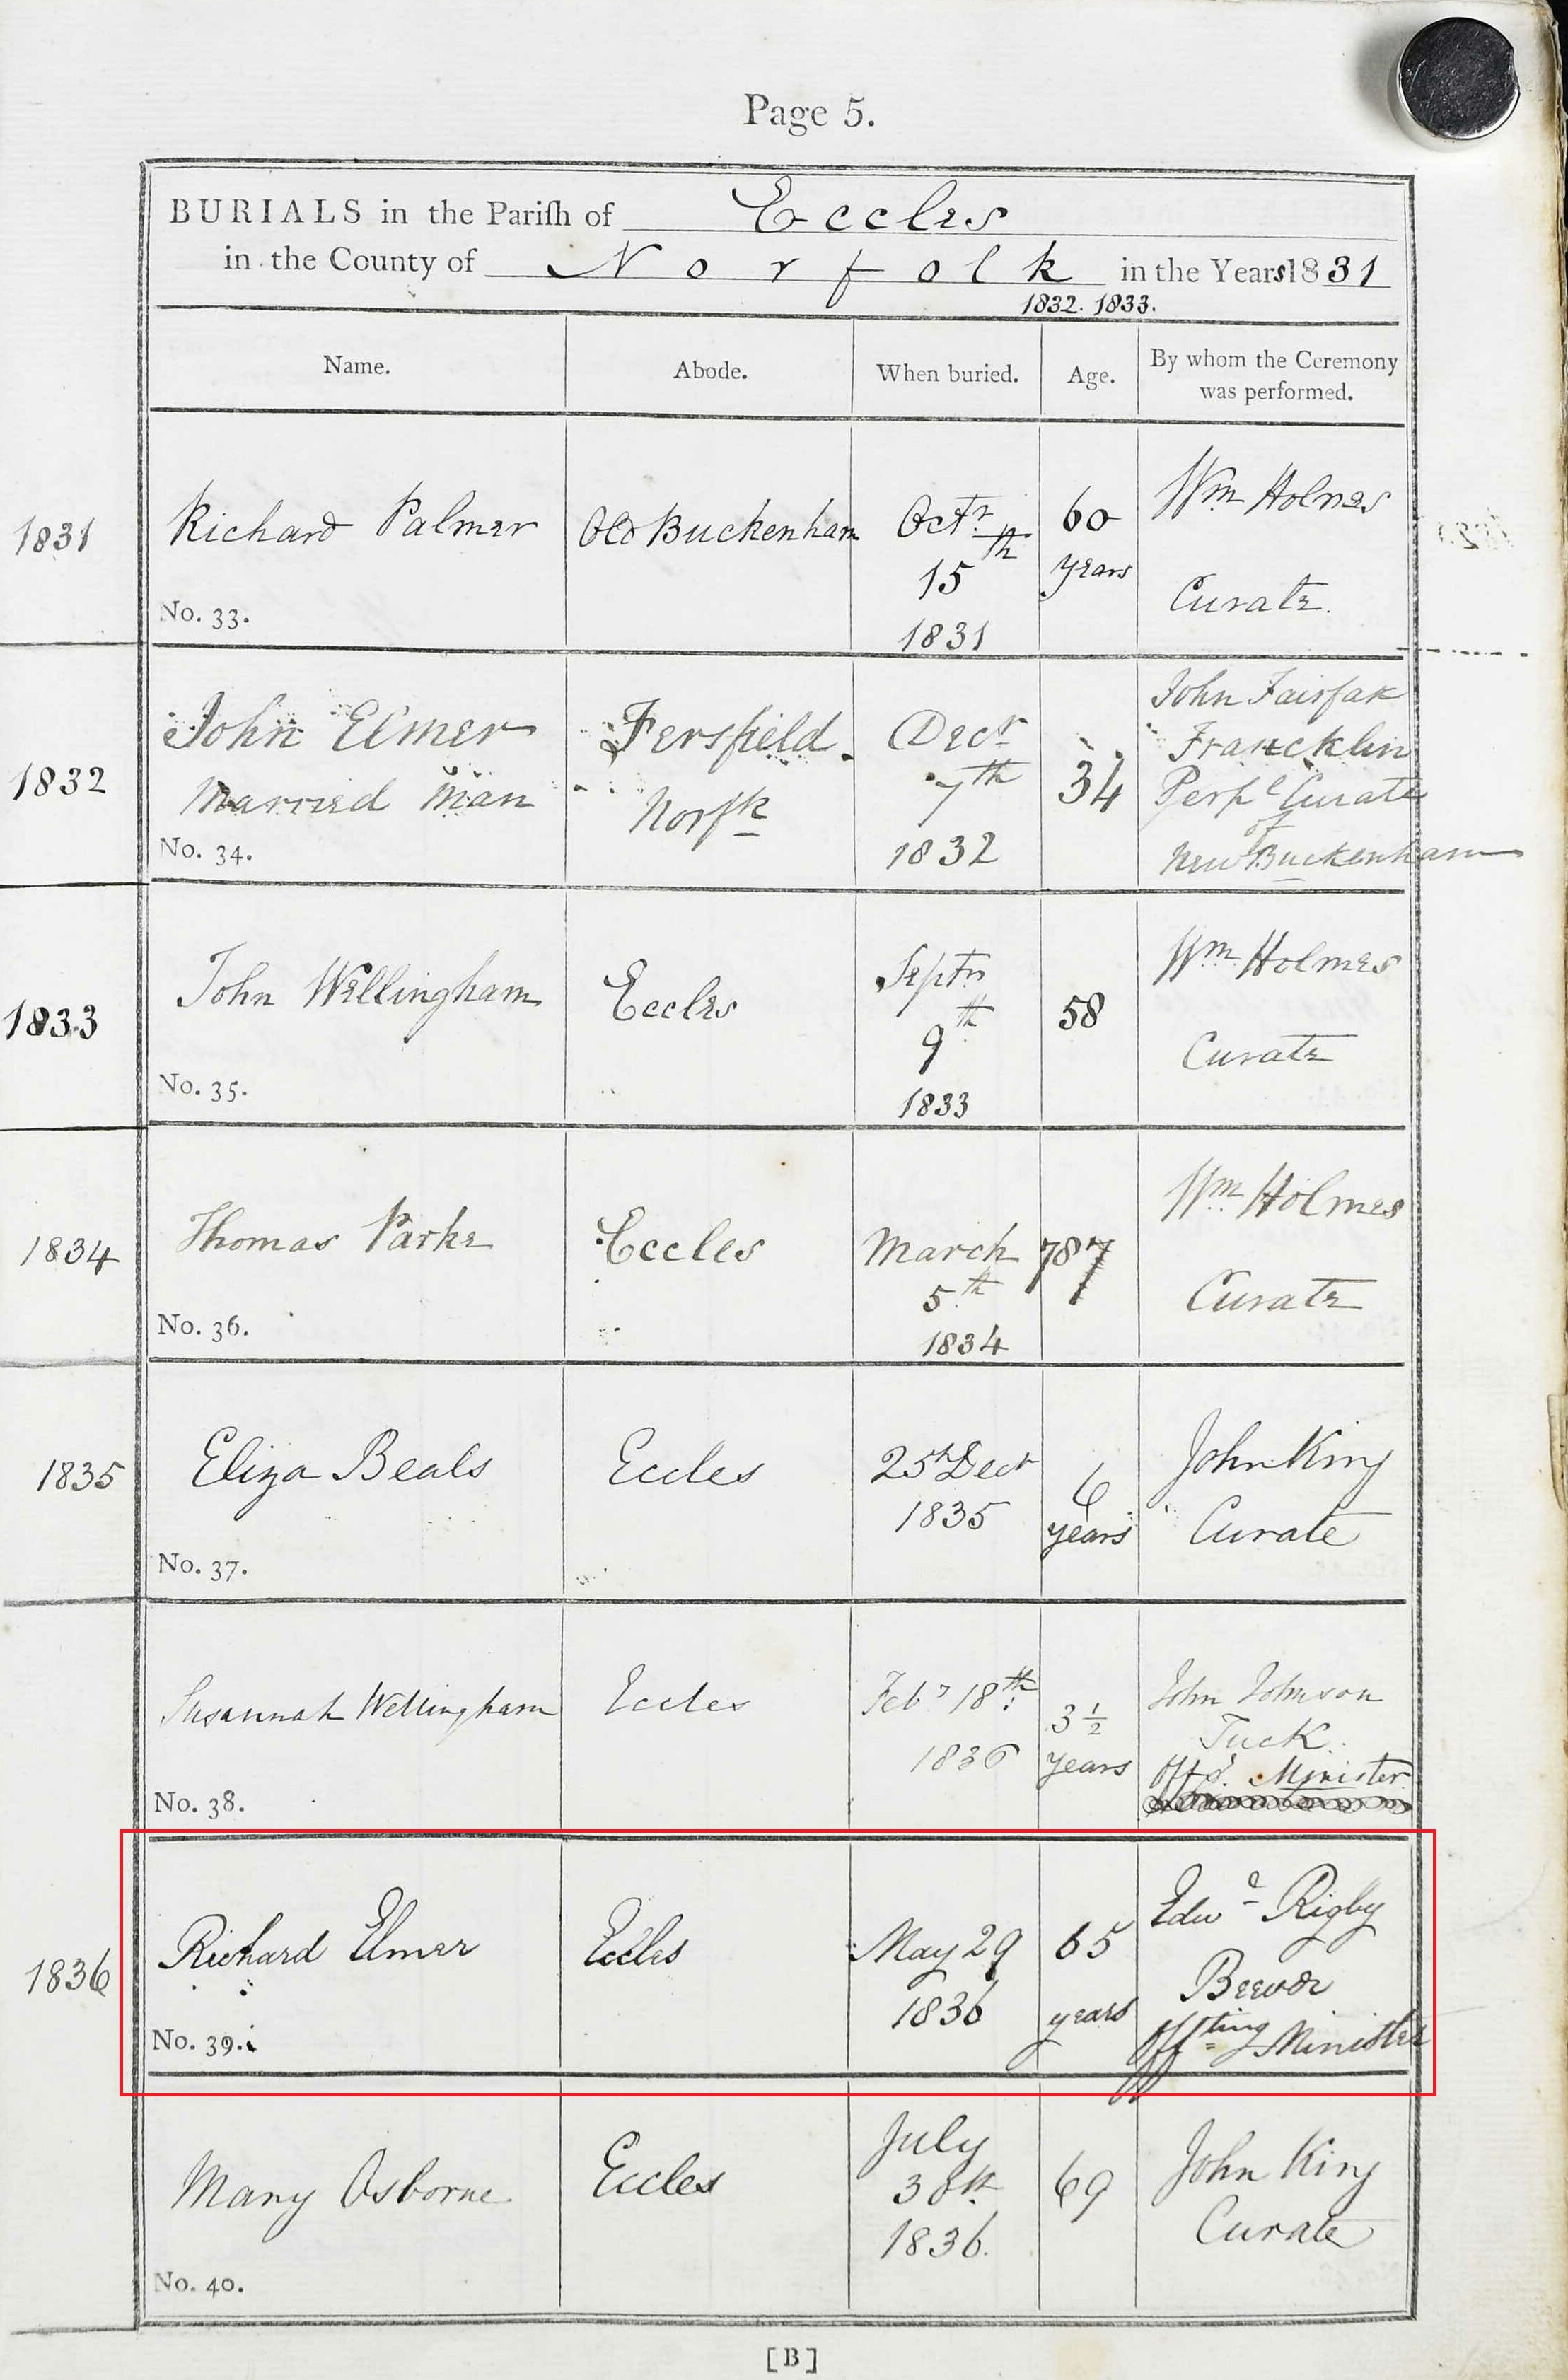 Page 5.
BURIALS in the Pariſh of Eccles
in the County of Norfolk in the Years 1831
1832. 1833.
Name. Abode. When buried. Age. By whom the Ceremony
was performed.
1831
Richard Palmer
No. 33.
Old Buckenham
Octr
15th
1831
60
years
Wm Holmes
Curate.
1832
John Elmer
Married Man
No. 34.
Fersfield.
Norfk
Decr
7th
1832
34
John Fairfax
Francklin
Perpl Curate
of
New Buckenham
1833
John Wellingham
No. 35.
Eccles
Septr
9th
1833
58
Wm Holmes
Curate
1834
Thomas Parke
No. 36.
Eccles
March
5th
1834
Wm Holmes
Curate
1835
Eliza Beals
No. 37.
Eccles
25th Decr
1835
6
years
John King
Curate
Susannah Wellingham
No. 38.
Eccles
Feby 18th
1836
3 1/2
years
John Johnson
Tuck
Offg. Minister
1836
Richard Elmer
No. 39.
Eccles
May 29
1836
65
years
Edwd Rigby
Beevor
Offting Minister
Mary Osborne
No. 40.
Eccles
July
1836.
69
John King
Curate
[B]